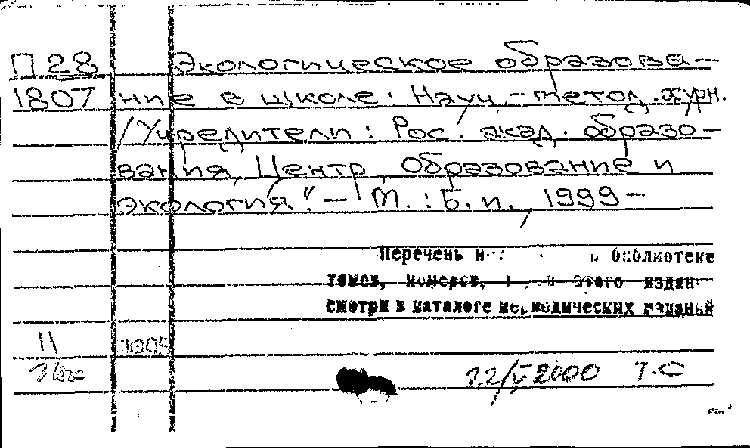 П 28 Экологическое образова-
1807 ние в школе: Науч.-метод. журн.
/Учредители: Рос. акад. образо-
вания, Центр „Образование и
экология“. – М.: Б. и., 1999 –
Перечень библиотеке
томов, номеров, этого издания
смотри в каталоге периодических изданий
11
22/V 2000 Т.С